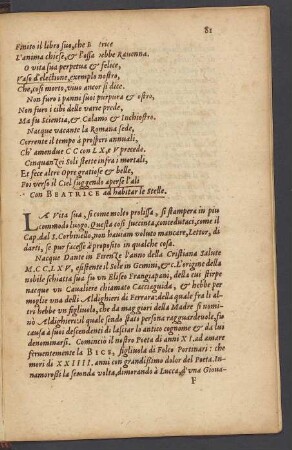 81
Finito il libro suo, che B trice
L'anima chiese, & l'ossa ebbe Rauenna.
O vita sua perpetua & felice,
Vaso d'elettione, exemplo nostro,
Che, così morto, viuo ancor si dice.
Non furo i panni suoi purpura & ostro,
Non furo i cibi delle varie prede,
Ma fu Scientia, & Calamo & Inchiostro.
Nacque vacante la Romana sede,
Corrente il tempo à prosperi annuali,
Ch' amendue CC con LX, & V procedo.
CinquanSei Soli stette infra i mortali,
Et fece altre Opre gratiose & belle,
Poi verso il Ciel suggendo aperse l'ali
Con BEATRICE ad habitar le Stelle.
LA Vita sua, si come molto prolissa, si stampera in piu
commodo luogo. Questa così succinta, conceduta ci, come il
Cap. dal S. Corbinello, non hauiam voluto mancare, Lettor, di
darti, se pur facesse à proposito in qualche cosa.
Nacque Dante in FirenZe l'anno della Cristiana Salute
M.CC.LXV, existente il Sole in Gemini, &c. L'origine della
nobile schiatta sua fu un Eliseo Frangipani, della cui stirpe
nacque un Caualiere chiamato Cacciaguida, & hebbe per
moglie una delli Aldighieri di Ferrara: della quale fra li al-
tri hebbe un figliuolo, che da maggiori della Madre fu nomi-
nò Aldighieri: il quale sendo stato persona ragguardeuole, fu
causa a suoi descendenti di lasciar lo antico cognome & da lui
denominarsi. Cominciò il nostro Poeta di anni XI. ad amare
feruentemente la BICE, figliuola di Folco Portinari: che
morì di XXIIII. anni con grandissimo dolor del Poeta. In-
namorossi la seconda volta, dimorando à Lucca, d'una Gioua-
F